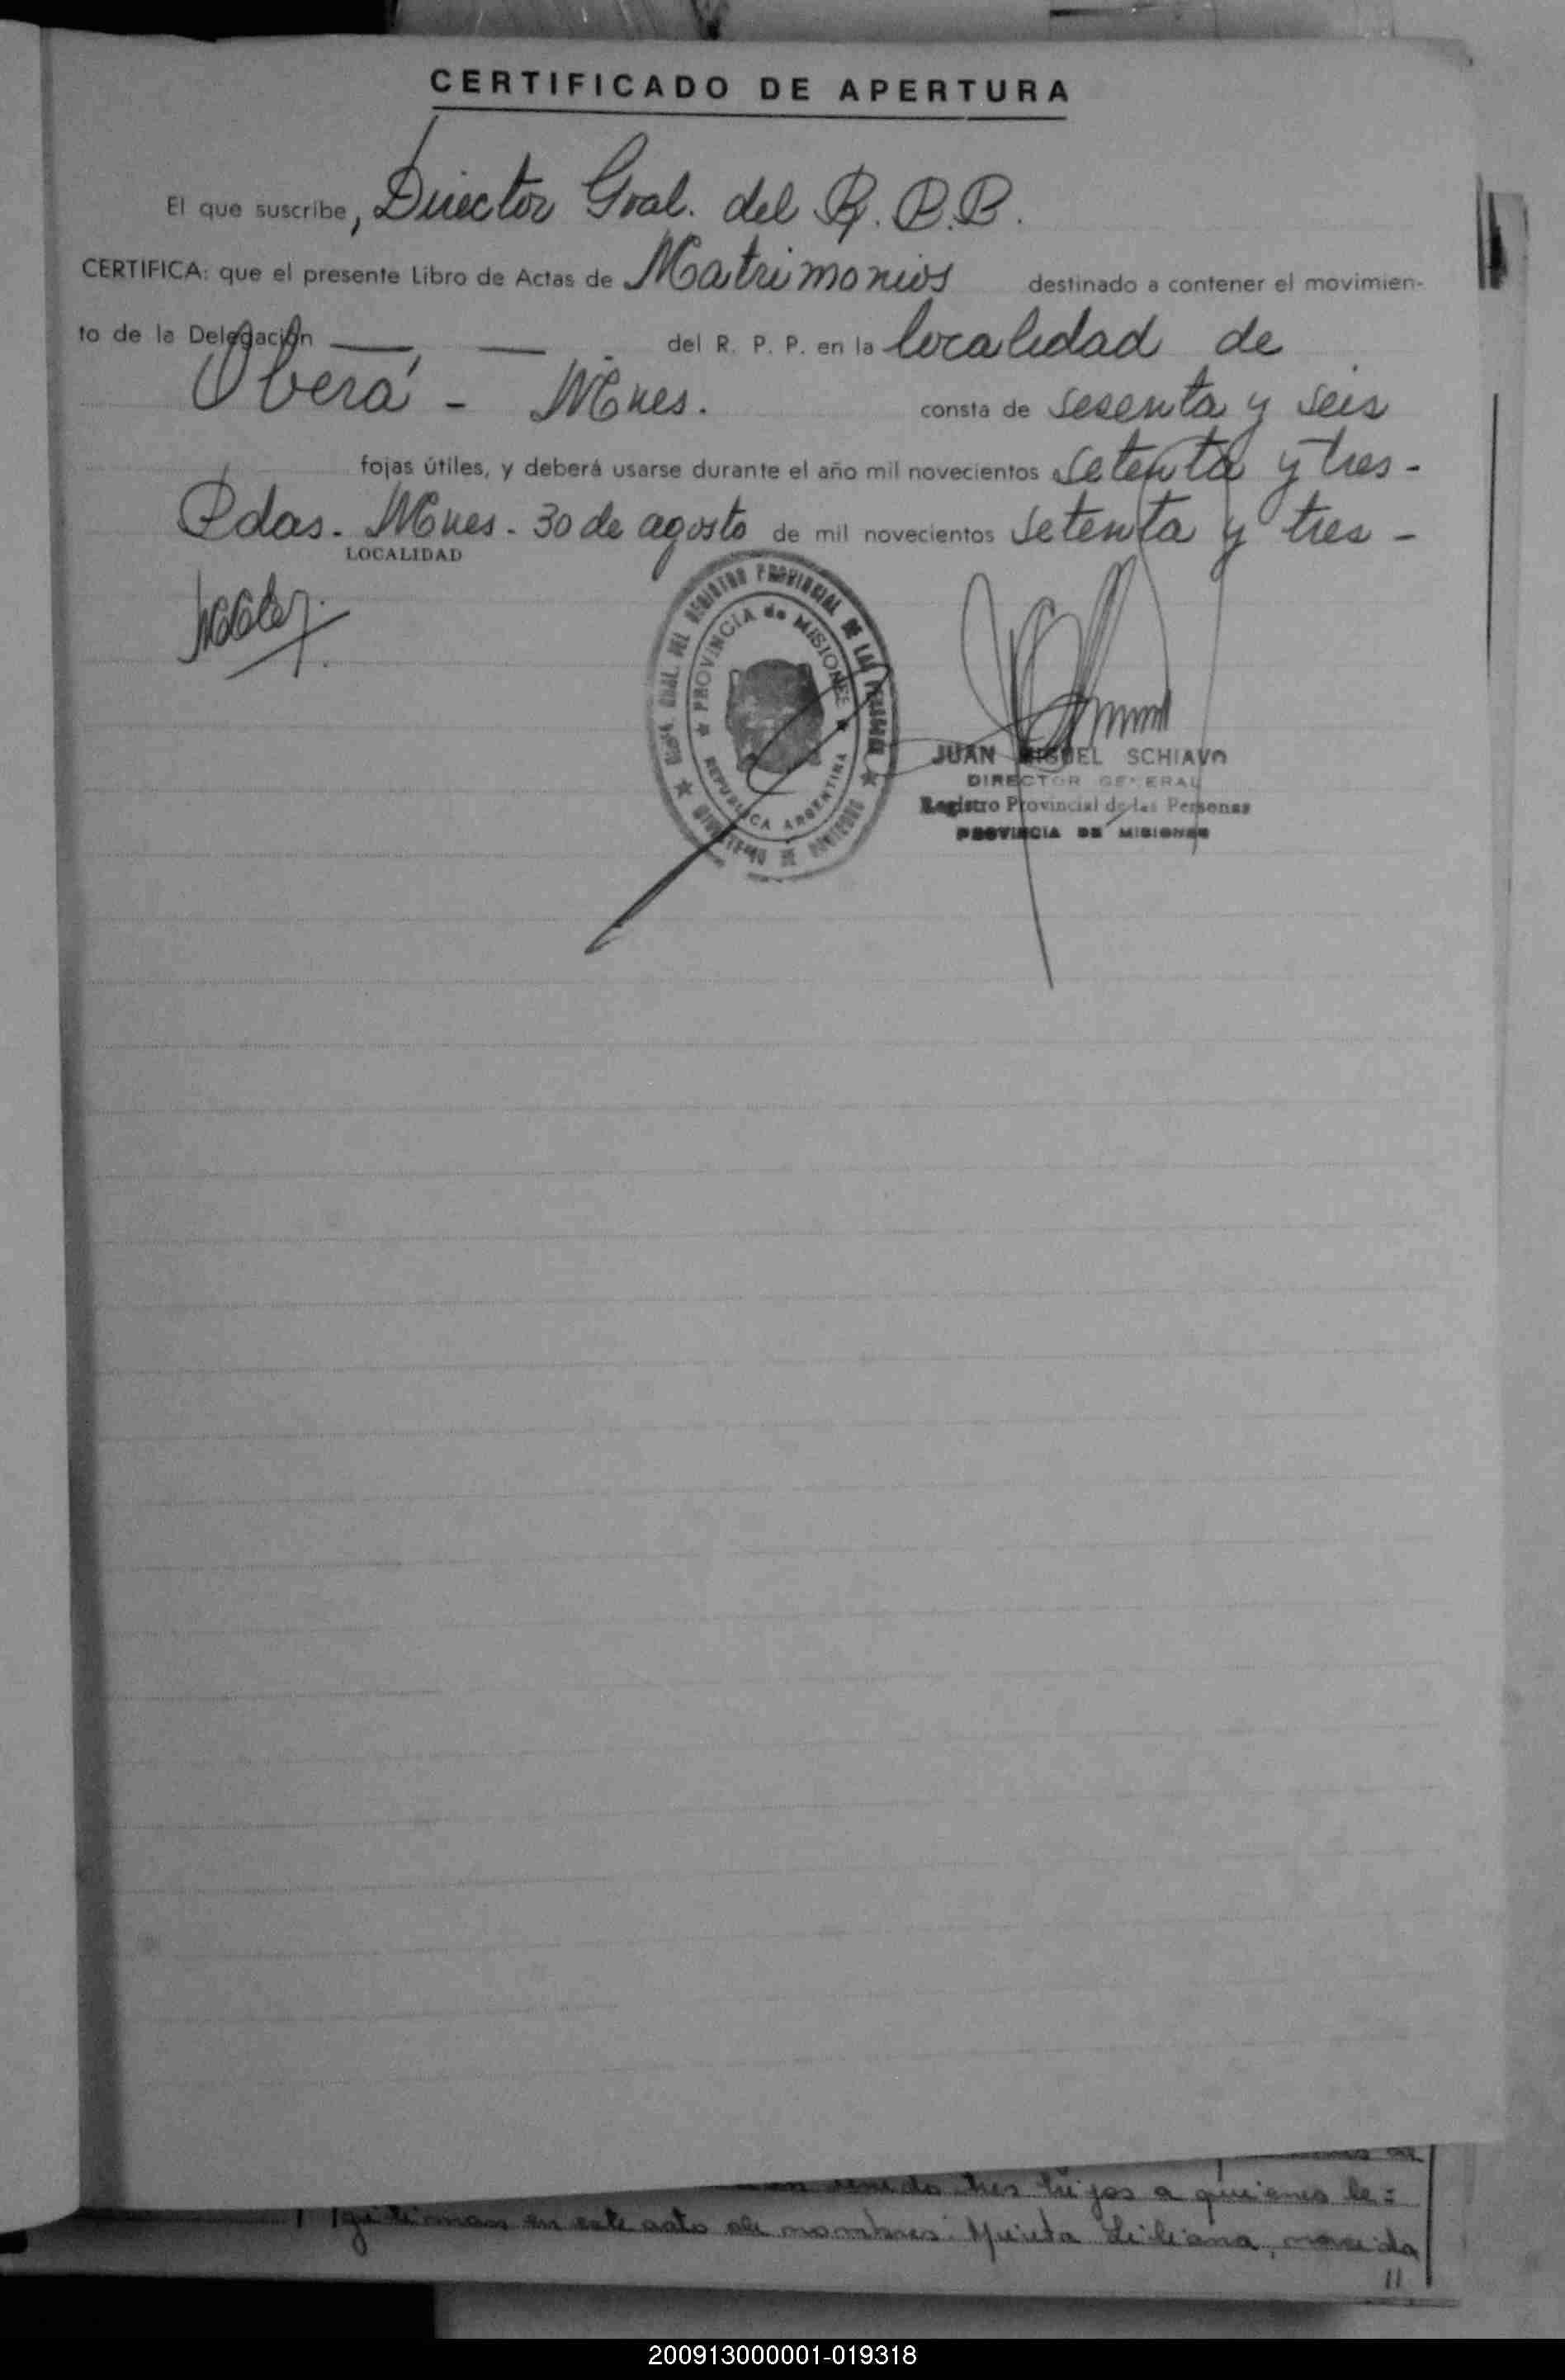 CERTIFICADO DE APERTURA
El que suscribe, Director Gral. del R. P. P.
CERTIFICA: que el presente Libro de Actas de Matrimonios destinado a contener el movimien-
to de la Delegación — — . del R. P. P. en la localidad de
Oberá - Mnes. consta de sesenta y seis
fojas útiles, y deberá usarse durante el año mil novecientos setenta y tres -
Pdas. Mnes. - 30 de agosto de mil novecientos setenta y tres -
LOCALIDAD
DIR. GRAL. DEL REGISTRO PROVINCIAL DE LAS PERSONAS
PROVINCIA de MISIONES
REPUBLICA ARGENTINA
MINISTERIO DE GOBIERNO
JUAN MIGUEL SCHIAVO
DIRECTOR GENERAL
Registro Provincial de las Personas
PROVINCIA DE MISIONES
tenido tres hijos a quienes le=
gitiman en este acto de nombres: Mirta Liliana, nacida
//
200913000001-019318